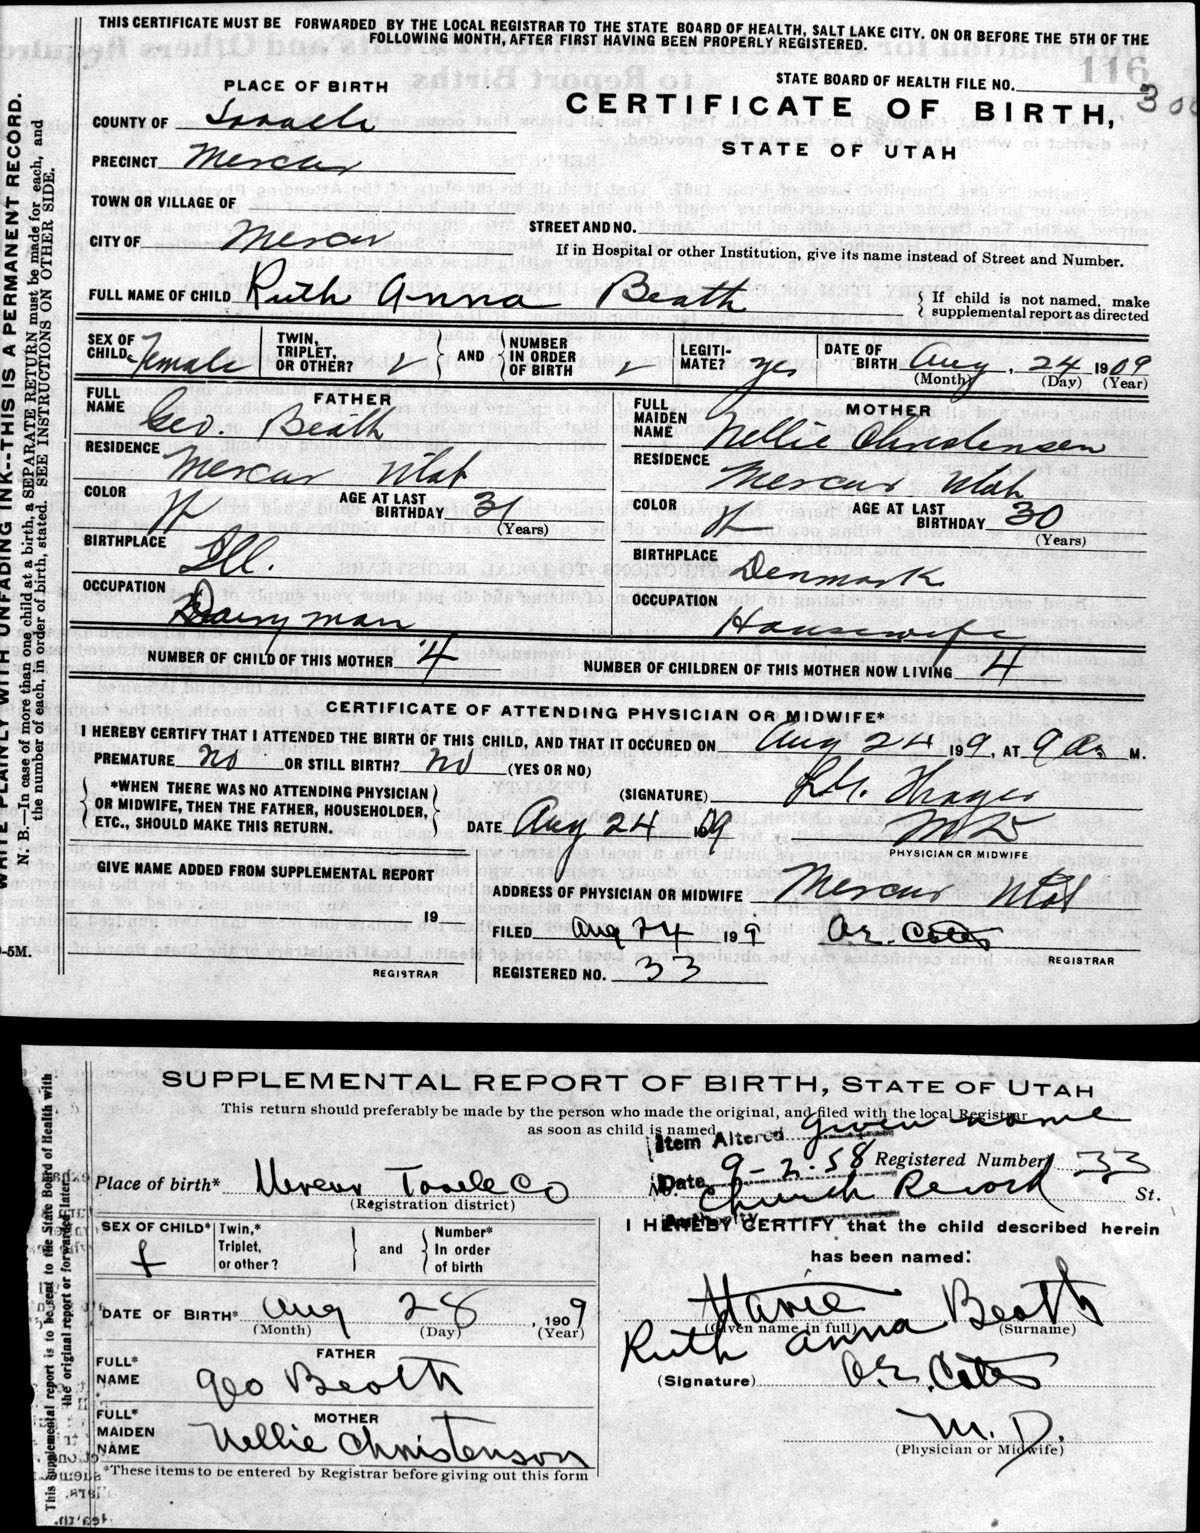 THIS CERTIFICATE MUST BE FORWARDED BY THE LOCAL REGISTRAR TO THE STATE BOARD OF HEALTH, SALT LAKE CITY. ON OR BEFORE THE 5TH OF THE
FOLLOWING MONTH, AFTER FIRST HAVING BEEN PROPERLY REGISTERED.
116
PLACE OF BIRTH
STATE BOARD OF HEALTH FILE NO.
CERTIFICATE OF BIRTH,
STATE OF UTAH
COUNTY OF Tooele
PRECINCT Mercur
TOWN OR VILLAGE OF
CITY OF Mercur
STREET AND NO.
If in Hospital or other Institution, give its name instead of Street and Number.
FULL NAME OF CHILD Ruth Anna Beath
If child is not named, make
supplemental report as directed
SEX OF CHILD Female TWIN, TRIPLET, OR OTHER? AND NUMBER IN ORDER OF BIRTH LEGITI- MATE? yes DATE OF BIRTH Aug, 24 1909
(Month) (Day) (Year)
FATHER
FULL NAME Geo. Beath
RESIDENCE Mercur Utah
COLOR W AGE AT LAST BIRTHDAY 31
(Years)
BIRTHPLACE Ill.
OCCUPATION Dairyman
MOTHER
FULL MAIDEN NAME Nellie Christensen
RESIDENCE Mercur Utah
COLOR W AGE AT LAST BIRTHDAY 30
(Years)
BIRTHPLACE Denmark
OCCUPATION Housewife
NUMBER OF CHILD OF THIS MOTHER 4 NUMBER OF CHILDREN OF THIS MOTHER NOW LIVING 4
CERTIFICATE OF ATTENDING PHYSICIAN OR MIDWIFE*
I HEREBY CERTIFY THAT I ATTENDED THE BIRTH OF THIS CHILD, AND THAT IT OCCURED ON Aug 24 199, AT 9 a. M.
PREMATURE No OR STILL BIRTH? No (YES OR NO)
*WHEN THERE WAS NO ATTENDING PHYSICIAN
OR MIDWIFE, THEN THE FATHER, HOUSEHOLDER,
ETC., SHOULD MAKE THIS RETURN.
(SIGNATURE)
DATE Aug 24 1909 M.D.
PHYSICIAN OR MIDWIFE
GIVE NAME ADDED FROM SUPPLEMENTAL REPORT
19
REGISTRAR
ADDRESS OF PHYSICIAN OR MIDWIFE Mercur Utah
FILED Aug 24 199 A.E. Cates
REGISTRAR
REGISTERED NO. 33
WRITE PLAINLY WITH UNFADING INK--THIS IS A PERMANENT RECORD.
N. B.—In case of more than one child at a birth, a SEPARATE RETURN must be made for each, and
the number of each, in order of birth, stated. SEE INSTRUCTIONS ON OTHER SIDE.
-5M.
SUPPLEMENTAL REPORT OF BIRTH, STATE OF UTAH
This return should preferably be made by the person who made the original, and filed with the local Registrar
as soon as child is named.
Item Altered given name
Date 9-2-58 Registered Number 33
Place of birth* Mercur Tooele Co No. Church Record St.
(Registration district)
Authority
SEX OF CHILD* f Twin,* Triplet, or other? and Number* In order of birth
I HEREBY CERTIFY that the child described herein
has been named:
DATE OF BIRTH* Aug 28, 1909
(Month) (Day) (Year)
Beath
(Given name in full) (Surname)
Ruth Anna
FATHER
FULL* NAME Geo Beath
(Signature) A.E. Cates
MOTHER
FULL* MAIDEN NAME Nellie Christenson
M. D.
(Physician or Midwife)
*These items to be entered by Registrar before giving out this form
This supplemental report is to be sent to the State Board of Health with
the original report or forwarded later.